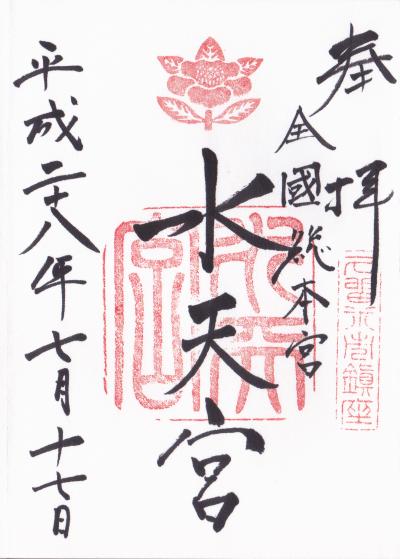 奉拝
全國総本宮
水天宮
平成二十八年七月十七日